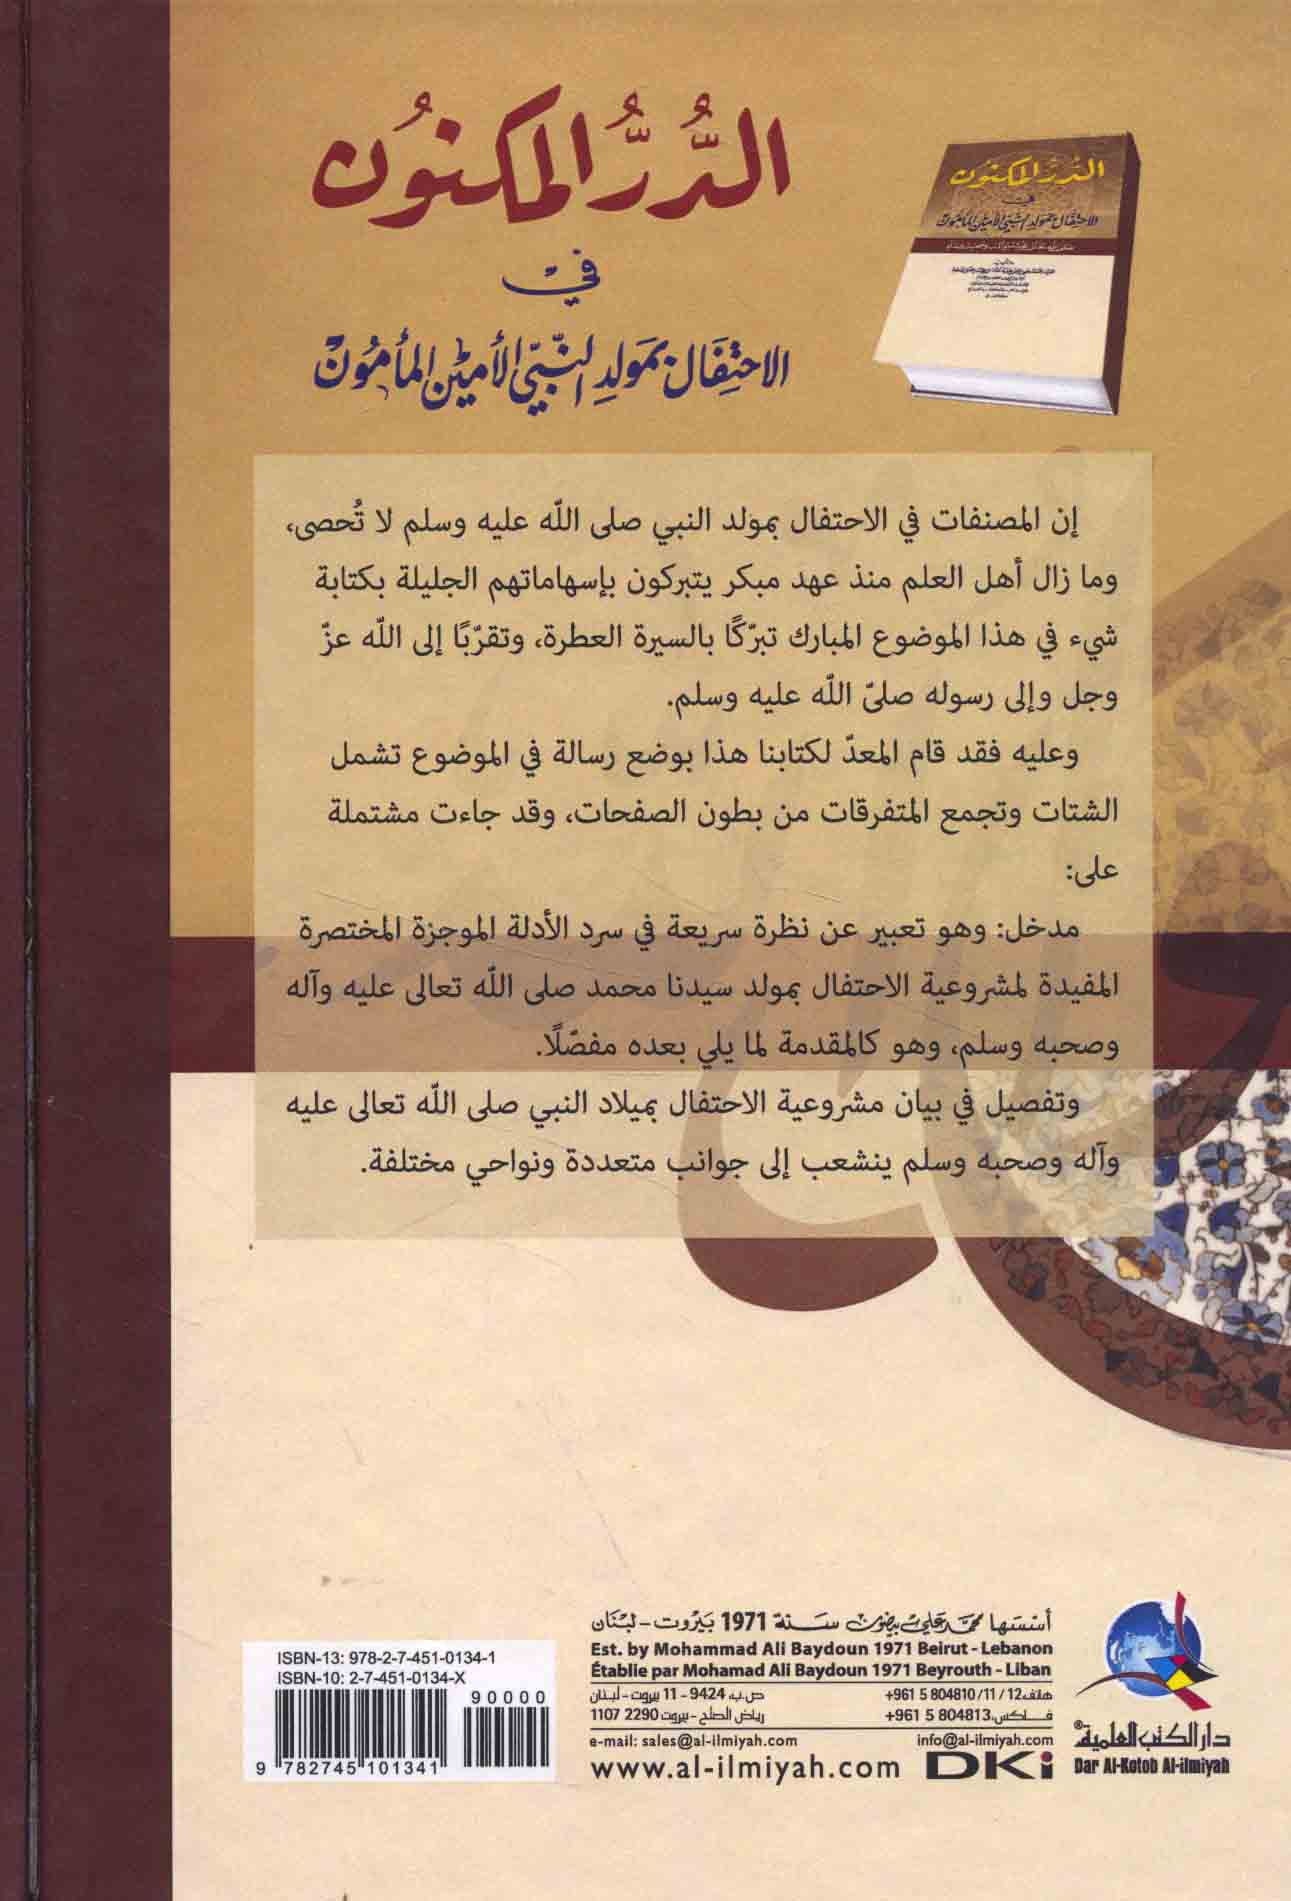 الدُّرُّ المكنُون
في
الاحتِفَال بمَولدِ النَّبيّ الأمين المأمُون
الدر المكنون
في
الاحتفال بمولد النبي الأمين المأمون
إن المصنفات في الاحتفال بمولد النبي صلى اللّه عليه وسلم لا تُحصى،
وما زال أهل العلم منذ عهد مبكر يتبركون بإسهاماتهم الجليلة بكتابة
شيء في هذا الموضوع المبارك تبرّكًا بالسيرة العطرة، وتقرّبًا إلى اللّه عزّ
وجل وإلى رسوله صلىّ اللّه عليه وسلم.
وعليه فقد قام المعدّ لكتابنا هذا بوضع رسالة في الموضوع تشمل
الشتات وتجمع المتفرقات من بطون الصفحات، وقد جاءت مشتملة
على:
مدخل: وهو تعبير عن نظرة سريعة في سرد الأدلة الموجزة المختصرة
المفيدة لمشروعية الاحتفال بمولد سيدنا محمد صلى اللّه تعالى عليه وآله
وصحبه وسلم، وهو كالمقدمة لما يلي بعده مفصّلًا.
وتفصيل في بيان مشروعية الاحتفال بميلاد النبي صلى اللّه تعالى عليه
وآله وصحبه وسلم ينشعب إلى جوانب متعددة ونواحي مختلفة.
أسسها محمد علي بيضون سنة 1971 بيروت - لبنان
Est. by Mohammad Ali Baydoun 1971 Beirut - Lebanon
Établie par Mohamad Ali Baydoun 1971 Beyrouth - Liban
هاتف: +961 5 804810/11/12 ص.ب: 9424 - 11 بيروت - لبنان
فاكس: +961 5 804813 رياض الصلح - بيروت 2290 1107
e-mail: sales@al-ilmiyah.com info@al-ilmiyah.com
www.al-ilmiyah.com DKi
دار الكتب العلمية®
Dar Al-Kotob Al-ilmiyah
ISBN-13: 978-2-7-451-0134-1
ISBN-10: 2-7-451-0134-X
90000
9 782745 101341